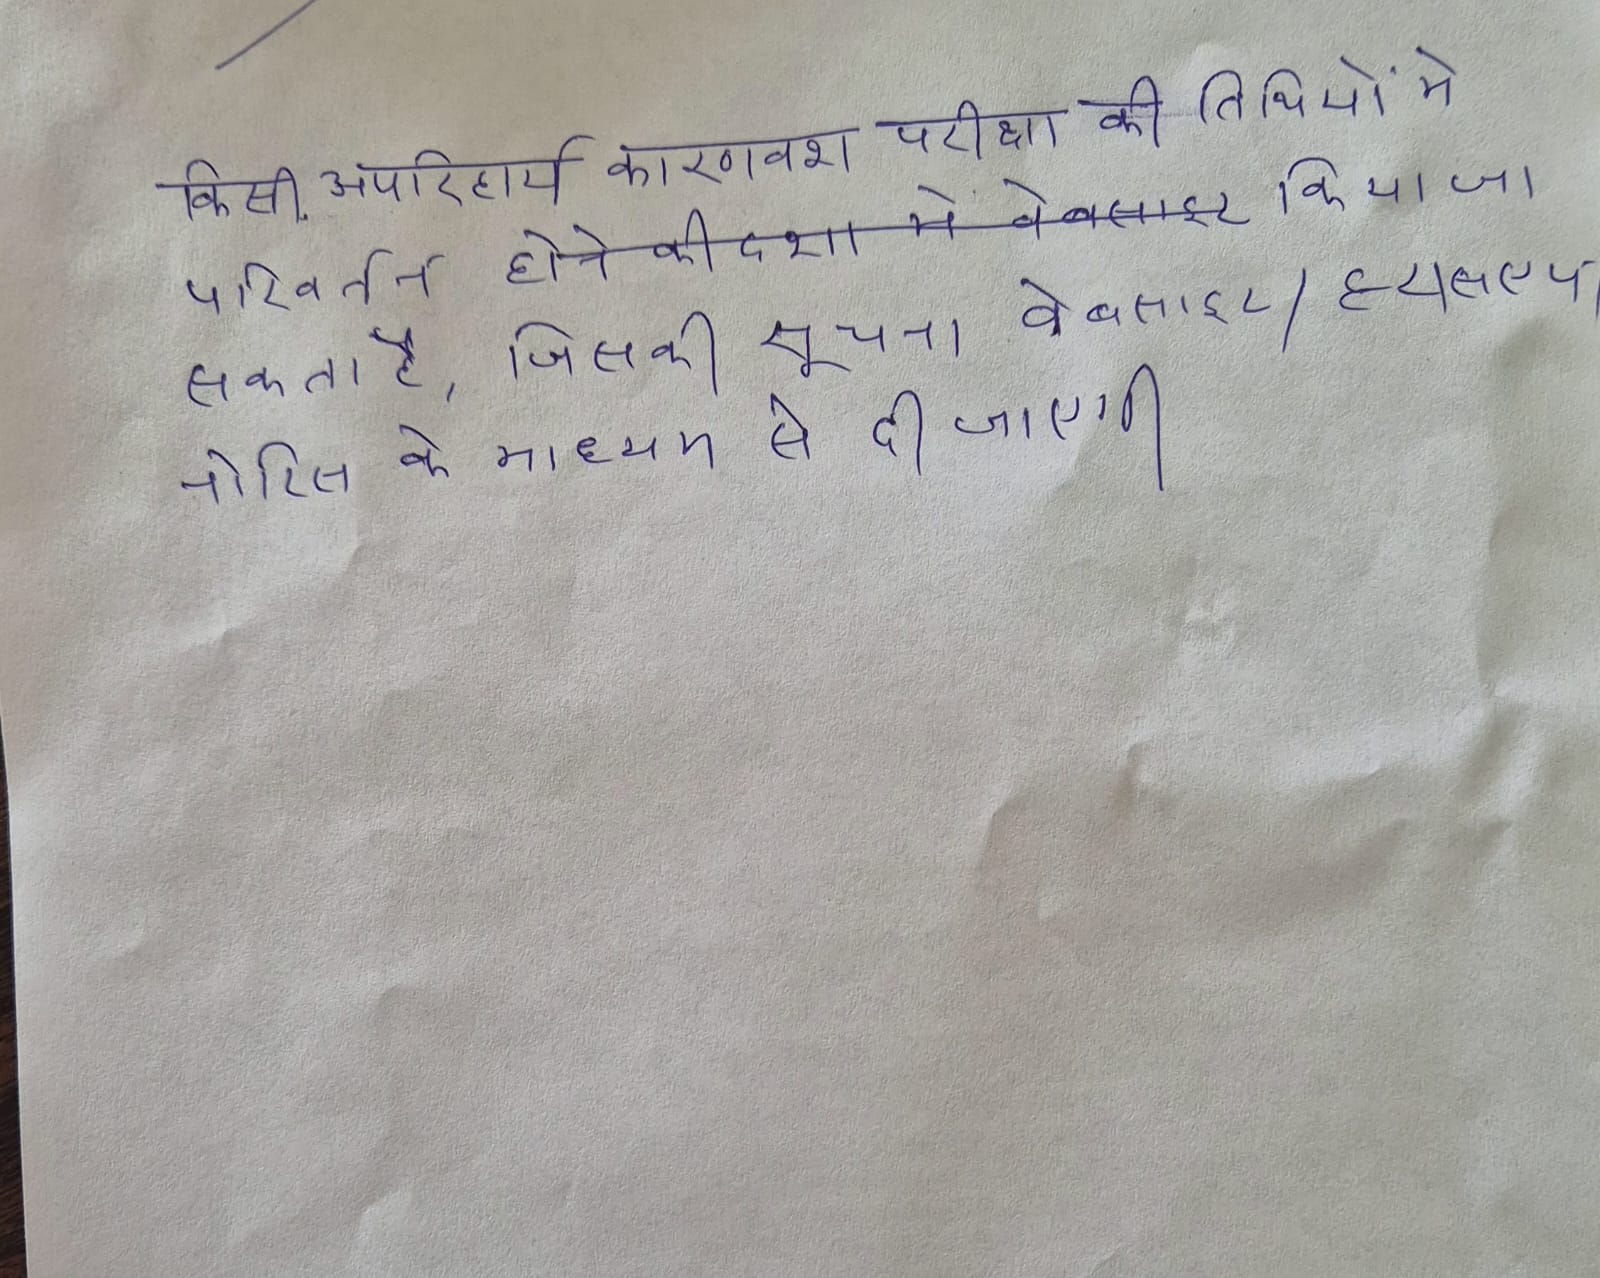 किसी अपरिहार्य कारणवश परीक्षा की तिथियों में
परिवर्तन होने की दशा में वेबसाइट किया जा
सकता है, जिसकी सूचना वेबसाइट/
नोटिस के माध्यम से दी जाएगी